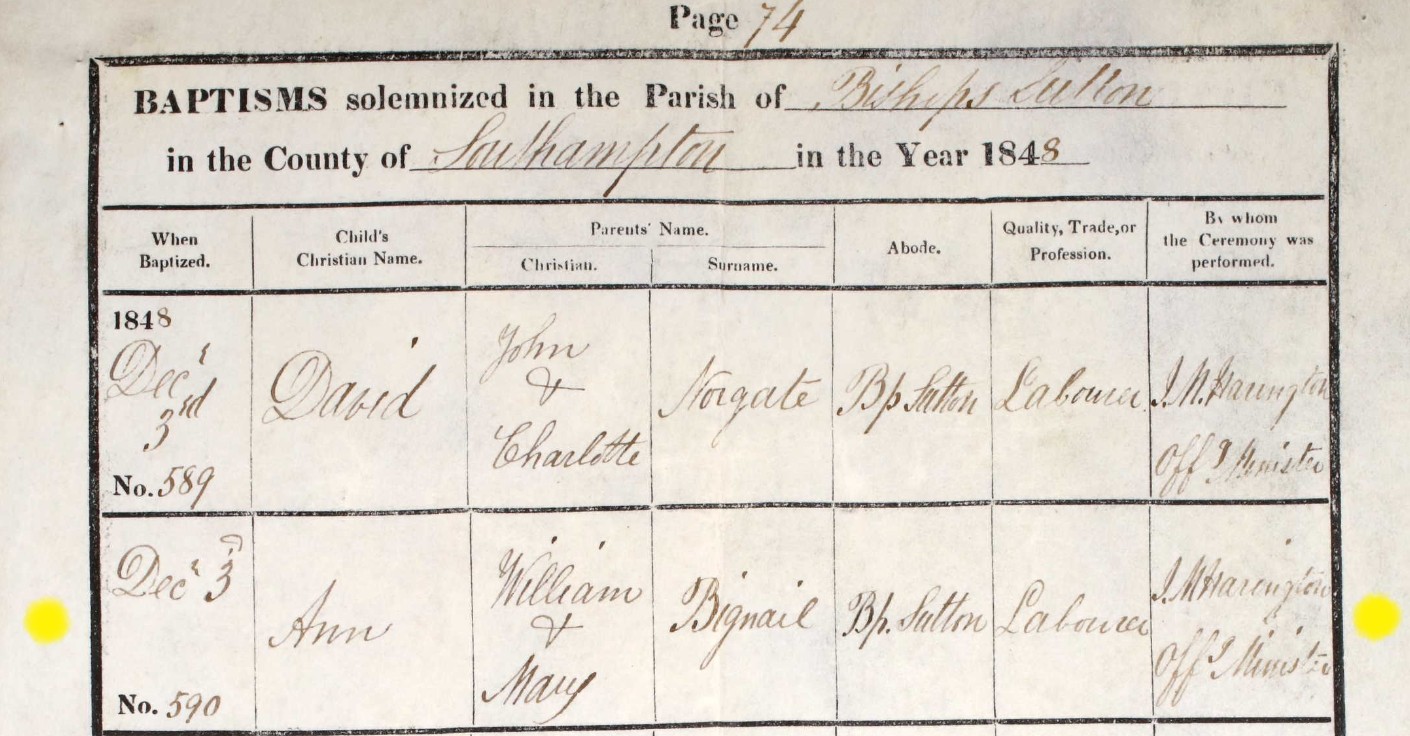 Page 74
BAPTISMS solemnized in the Parish of Bishops Sutton
in the County of Southampton in the Year 1848
When Baptized.
Child's Christian Name.
Parents' Name.
Christian.
Surname.
Abode.
Quality, Trade, or Profession.
By whom the Ceremony was performed.
1848
Decr
3rd
No. 589
David
John
&
Charlotte
Norgate
Bp Sutton
Labourer
J. M. Harington
Offg Minister
Decr 3
No. 590
Ann
William
&
Mary
Bignail
Bp. Sutton
Labourer
J M Harington
Offg Minister